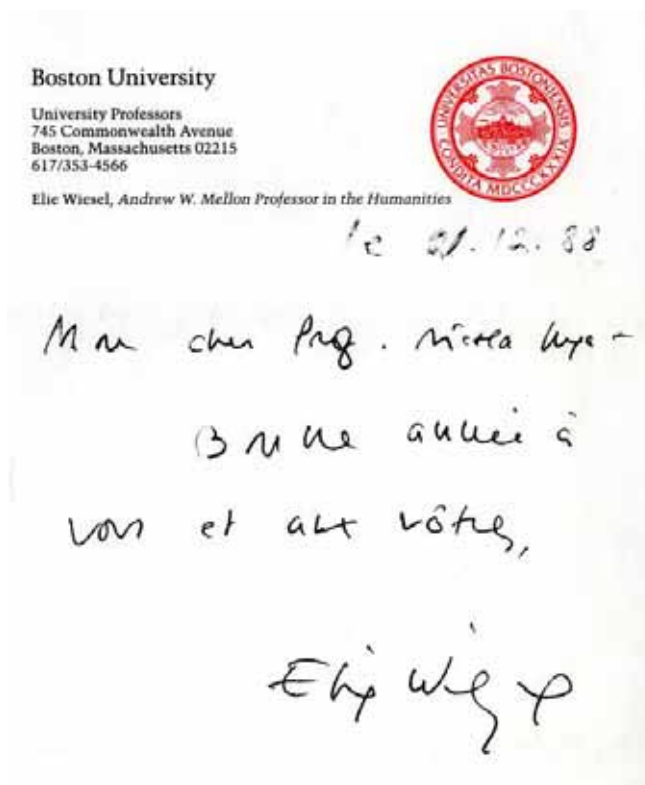 Boston University
University Professors
745 Commonwealth Avenue
Boston, Massachusetts 02215
617/353-4566
Elie Wiesel, Andrew W. Mellon Professor in the Humanities
UNIVERSITAS BOSTONIENSIS
CONDITA MDCCCXXXIX
le 21.12.88
Mon cher Prof. Nicola
Bonne année à
vous et aux vôtres,
Elie Wiesel